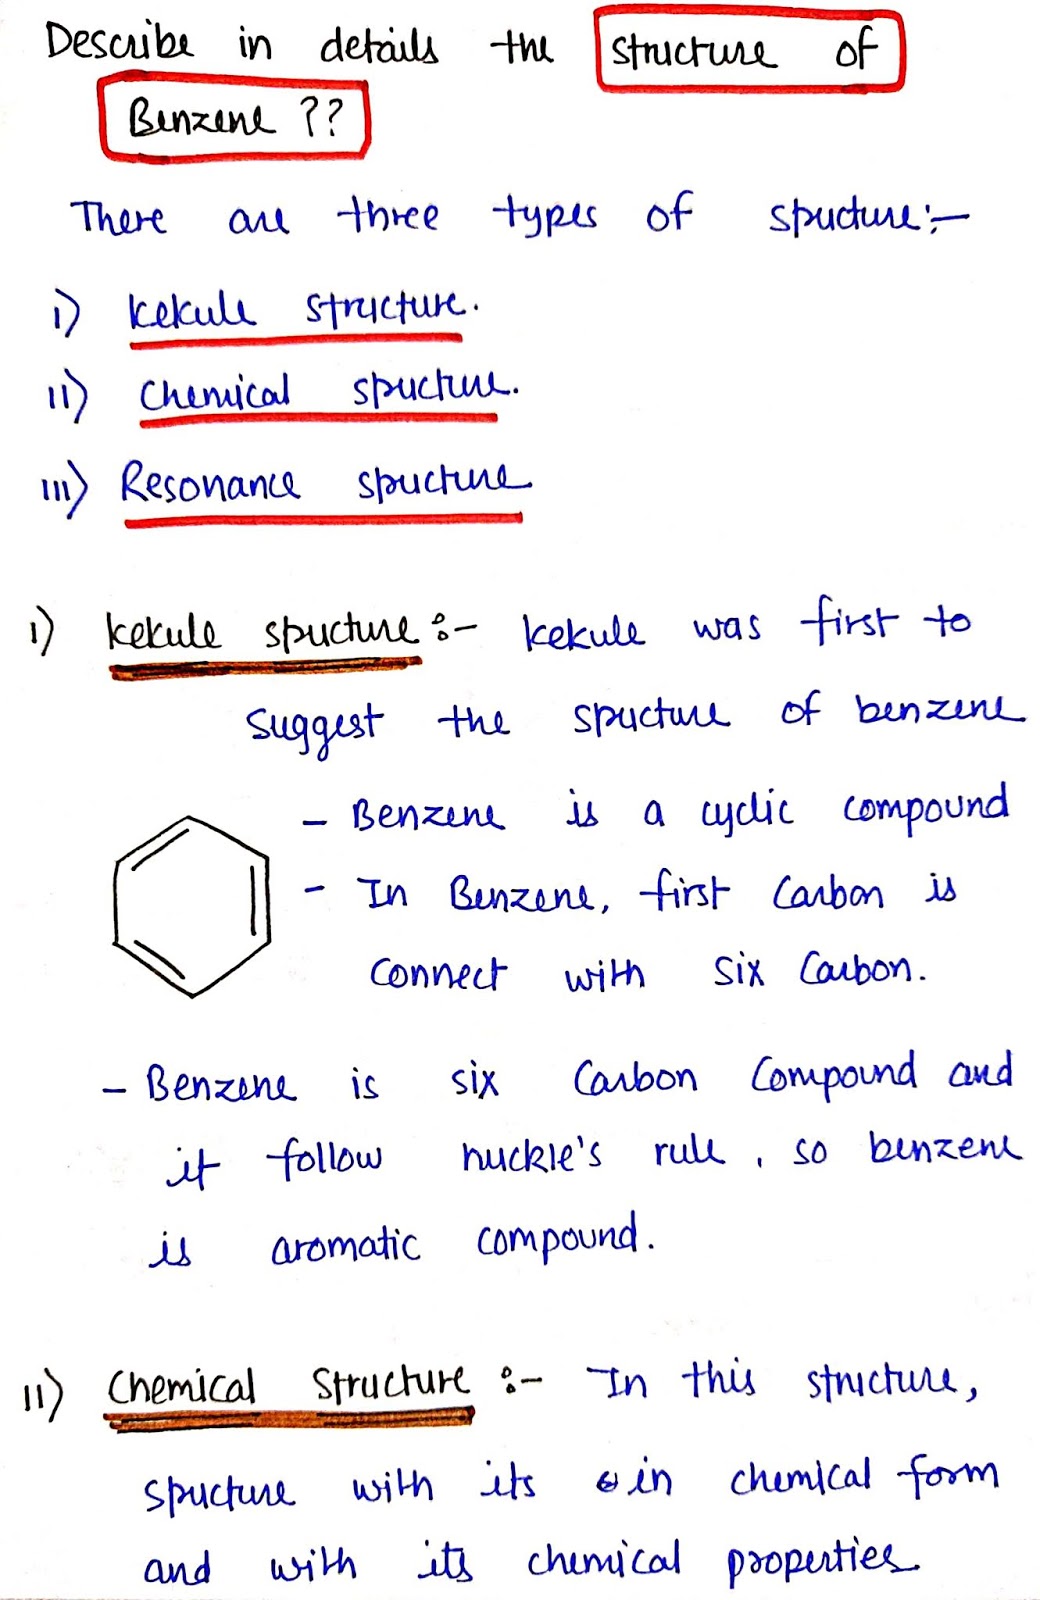 Describe in details the structure of
Benzene ??
There are three types of structure:-
i) Kekule structure.
ii) Chemical structure.
iii) Resonance structure
i) Kekule structure :- Kekule was first to
suggest the structure of benzene
- Benzene is a cyclic compound
- In Benzene, first Carbon is
connect with six Carbon.
- Benzene is six Carbon Compound and
it follow huckle's rule, so benzene
is aromatic compound.
ii) Chemical Structure :- In this structure,
structure with its in chemical form
and with its chemical properties